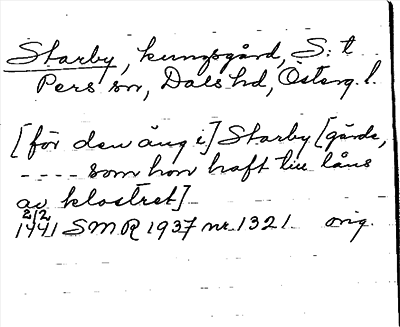 Starby, kungsgård, S:t
Pers sn, Dals hd, Österg. l.
[för den äng i] Starby [gärde,
---- som hon haft till låns
av klostret]
2/2
1441 SMR 1937 nr 1321 orig.